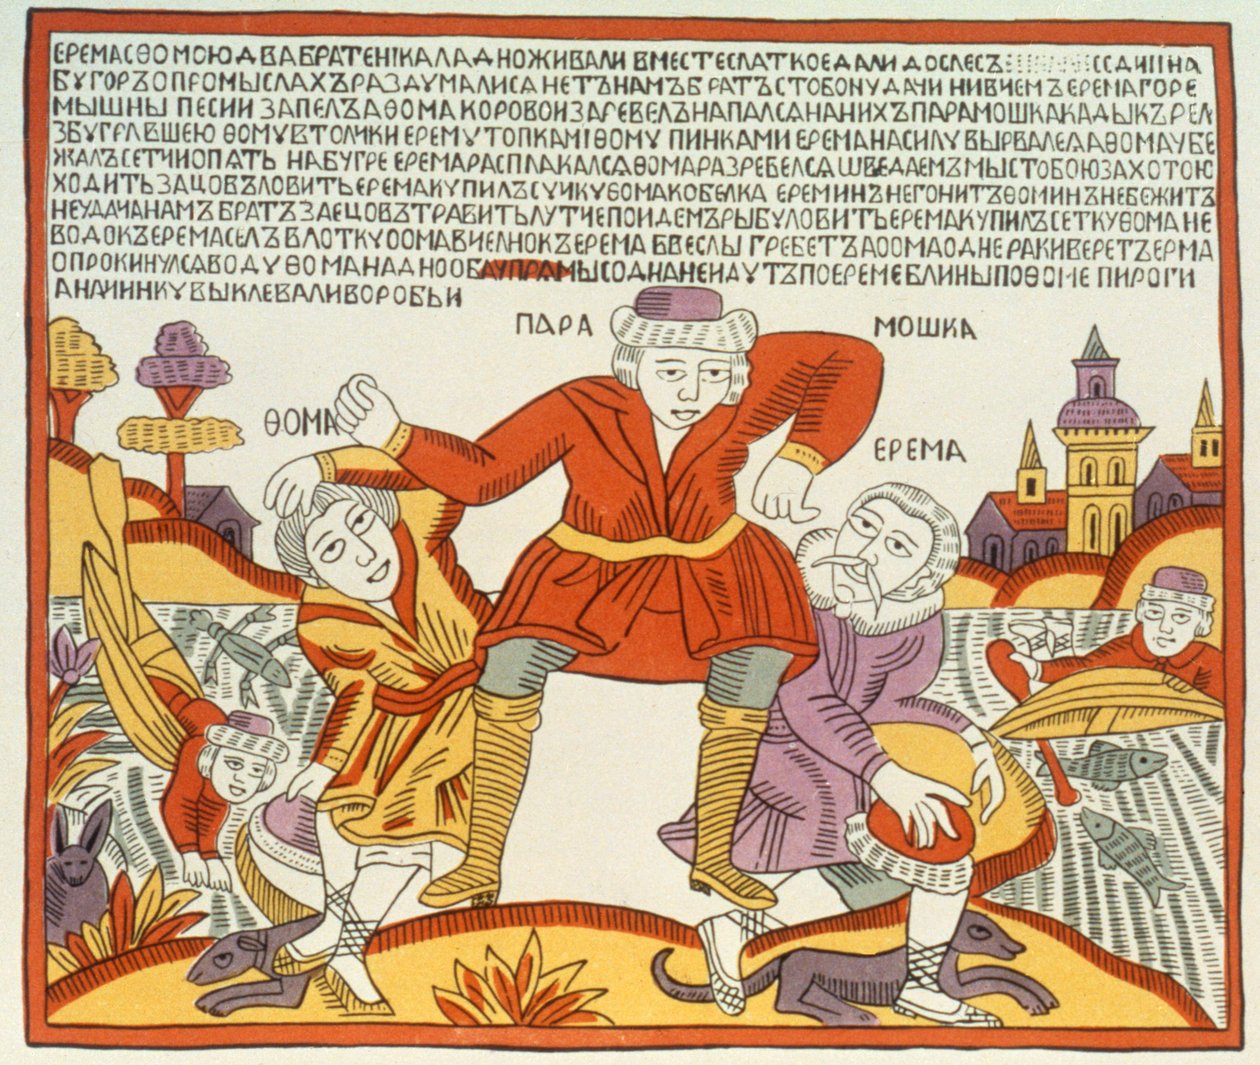 ЕРЕМАСѲОМОЮДВАБРАТЕНІКАЛАДНОЖИВАЛИ ВМЕСТЕСЛАТКОЕДАЛИ ДОСЛЕСЪ ССДИПНА
БУГОРЪОПРОМЫСЛАХЪРАЗДУМАЛИСА НЕТЪНАМЪБРАТЪСТОБОНУДАЧИ НИВЧЕМЪ ЕРЕМАГОРЕ
МЫШНЫ ПЕСНИ ЗАПЕЛЪАѲОМА КОРОВОИЗАРЕВЕЛЪНАПАЛСѦНАНИХЪПАРАМОШКАКАДЫКЪРЕЛ
ЗБУГРАВШЕЮ ѲОМУВТОЛИКИ ЕРЕМУТОПКАМІѲОМУ ПИНКАМИ ЕРЕМАНАСИЛУВЫРВАЛСѦАѲОМАУБЕ
ЖАЛЪСЕТЧИОПАТЬ НАБУГРЕ ЕРЕМАРАСПЛАКАЛСѦѲОМАРАЗРЕВЕЛСѦ ШВЕДАЕМЪМЫСТОБОЮЗАХОТОЮ
ХОДИТЬЗАЦОВЪЛОВИТЬЕРЕМАКУПИЛЪСУЧКУѲОМАКОБЕЛКА ЕРЕМИНЪНЕГОНИТЪѲОМИНЪНЕБЕЖИТЪ
НЕУДАЧАНАМЪБРАТЪЗАЕЦОВЪТРАВИТЬЛУТЧЕПОИДЕМЪРЫБУЛОВИТЬЕРЕМАКУПИЛЪСЕТКУѲОМА НЕ
ВОДОКЪЕРЕМАСЕЛЪВЛОТКУѲОМАВЧЕЛНОКЪЕРЕМА БВЕСЛЫ ГРЕБЕТЪАѲОМАОДНЕ РАКИВЕРЕТЪЕРМА
ОПРОКИНУЛСѦВОДУѲОМАНАДНООБАУПРАМЫСОДНАНЕИДУТЪПОЕРЕМЕБЛИНЫПОѲОМЕ ПИРОГИ
АНАЧИНКУВЫКЛЕВАЛИВОРОБЬИ
ПАРА МОШКА
ѲОМА
ЕРЕМА